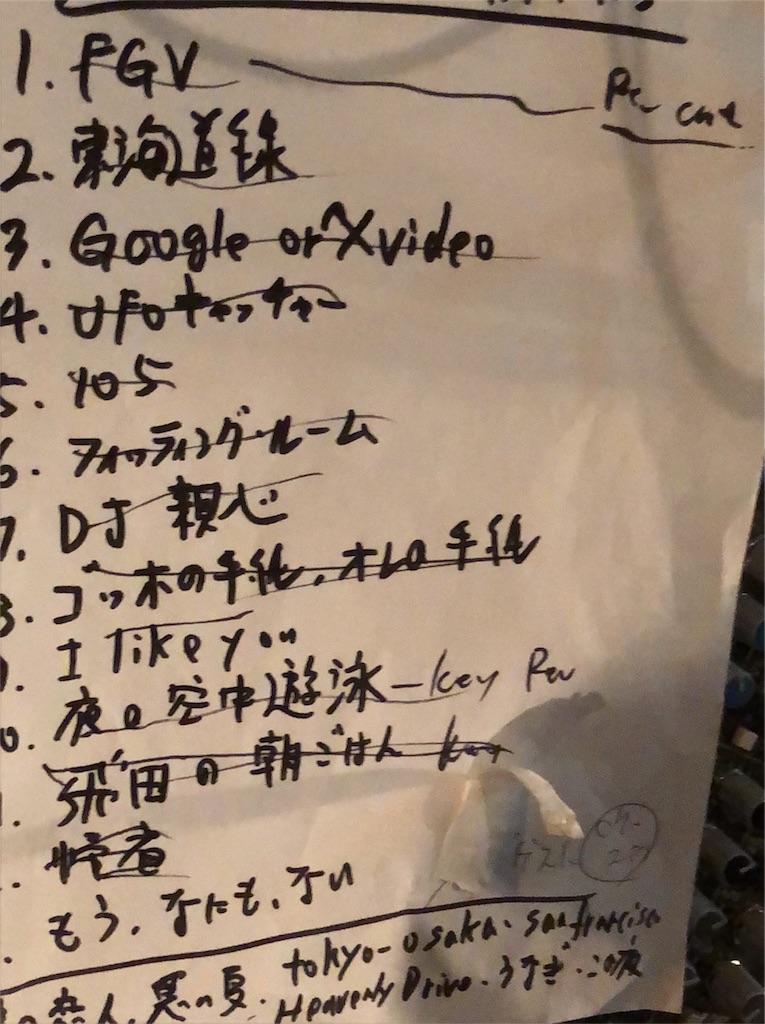 1. FGV Per cue
2. 東海道線
3. Google or Xvideo
4. UFOキャッチャー
5. 105
6. フィッティングルーム
7. DJ 親心
8. ゴッホの手紙,オレの手紙
9. I like you
10. 夜の空中遊泳 — key Per
飛田の朝ごはん key
怪者
もう,なにも,ない
ゲスト
の恋人.真冬の夏. tokyo-osaka-sanfrancisco
Heavenly Drive.うなぎ.この夜